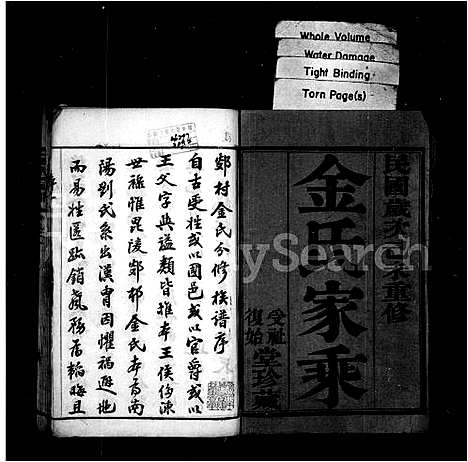 Whole Volume
Water Damage
Tight Binding
Torn Page(s)
金氏家乘
民國
重修
堂珍藏
鄴村金氏分修族譜序
自古受姓或以國邑或以官爵或以
王父字與謚類皆推本王侯侈陳
世祿惟毘陵鄴邨金氏本南
陽劉氏系出漢冑因懼禍避地
而易姓匿跡銷聲務農韜晦且